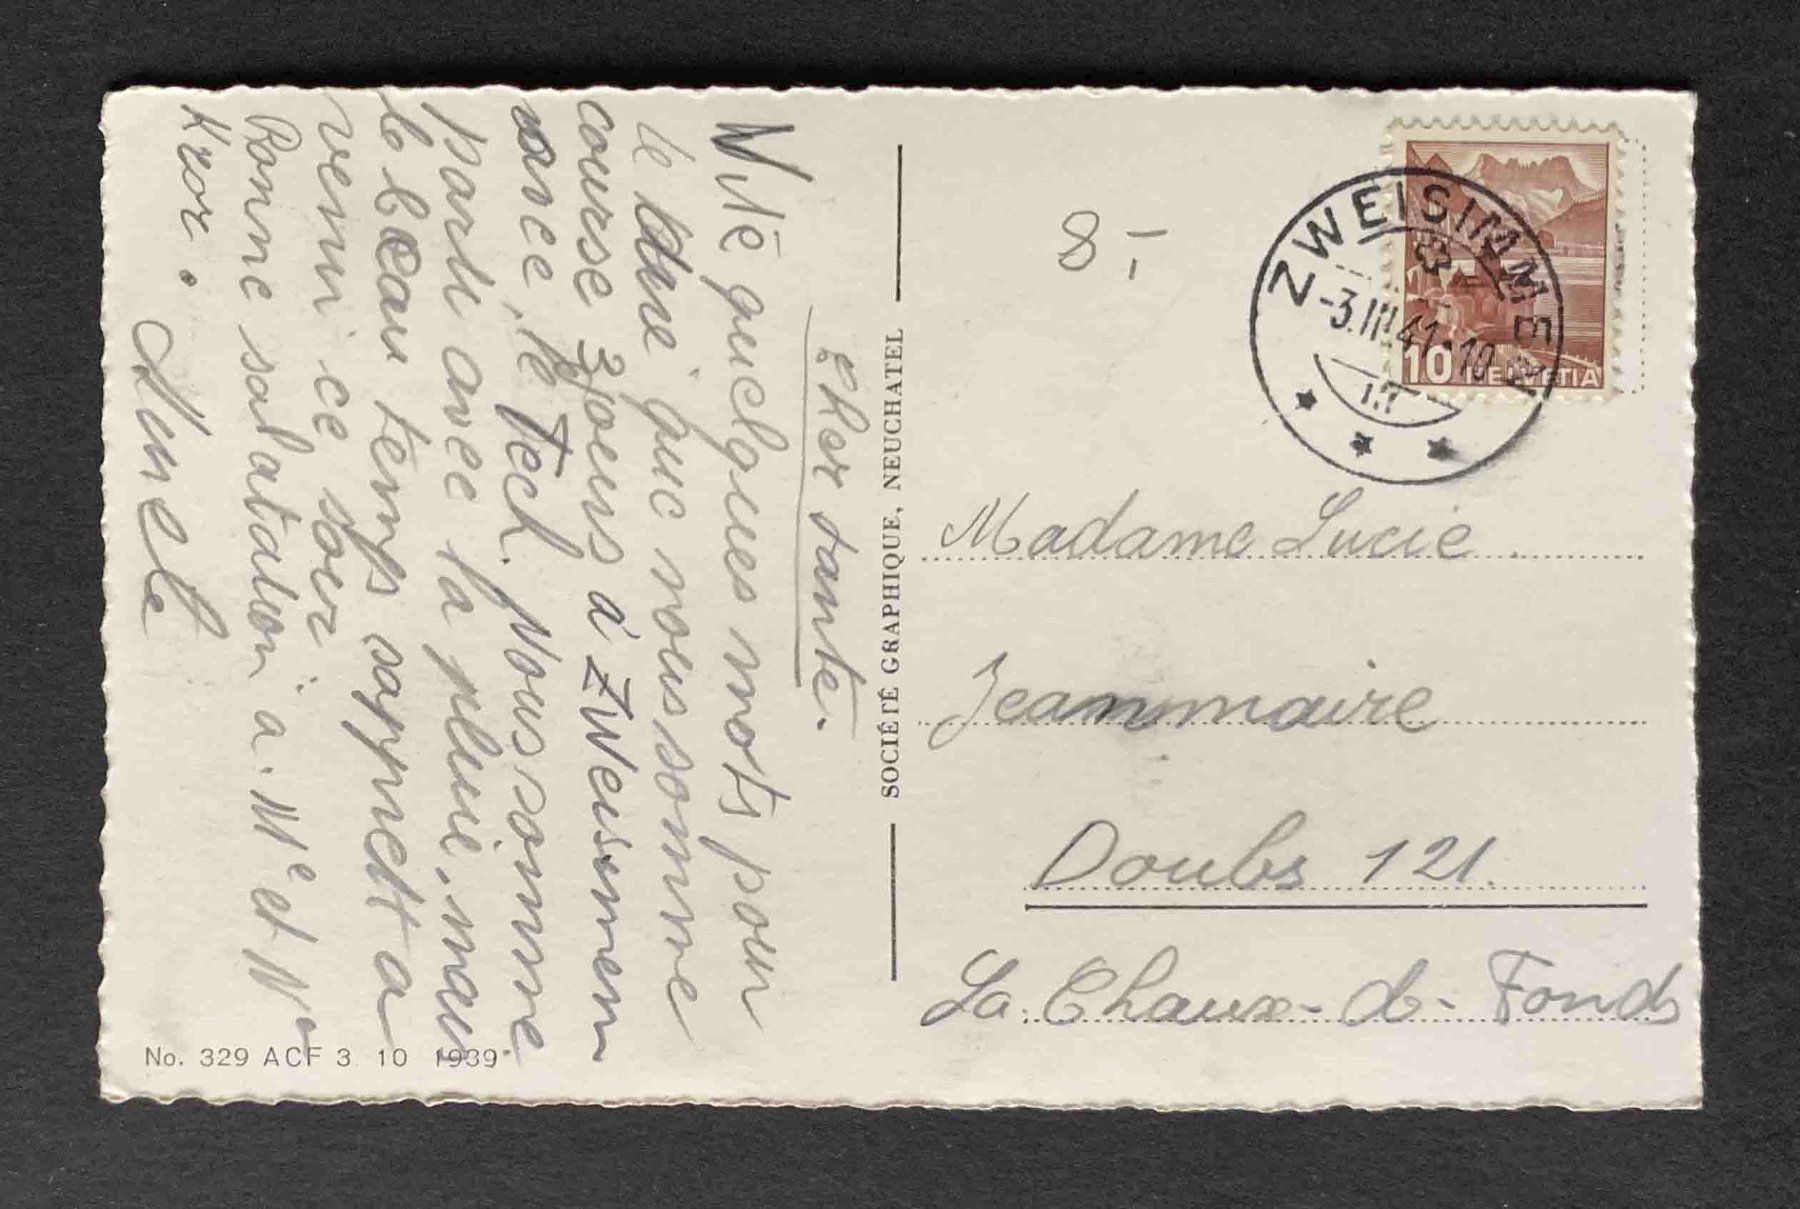 Cher tante.
Vite quelques mots pour
le dire que nous somme
course 3 jours à Zweisimmen
avec le Tech. Nous somme
parti avec la pluie, mais
le beau temps
venu ce soir.
Bonne salutation à Mr et Me
SOCIÉTÉ GRAPHIQUE, NEUCHATEL
No. 329 ACF 3 10 1939.
8.-
ZWEISIMMEN
-3.III.41-10
10 HELVETIA
Madame Lucie
Jeanmaire
Doubs 121.
La Chaux-d-Fonds